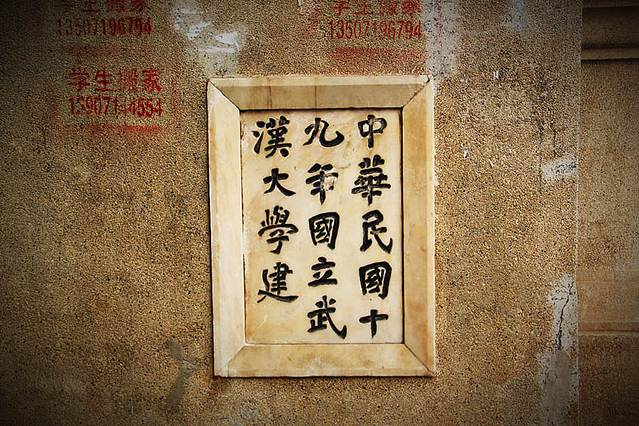 中華民國十
九年國立武
漢大學建
生搬家
13507196794
学生搬家
13507196794
学生搬家